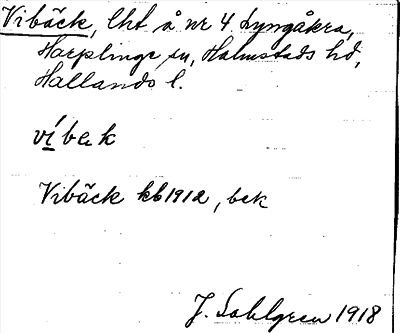 Vibäck, lht å nr 4 Lyngåkra,
Harplinge sn, Halmstads hd,
Hallands l.
víbɛk
Vibäck kb 1912, bek
J. Sahlgren 1918